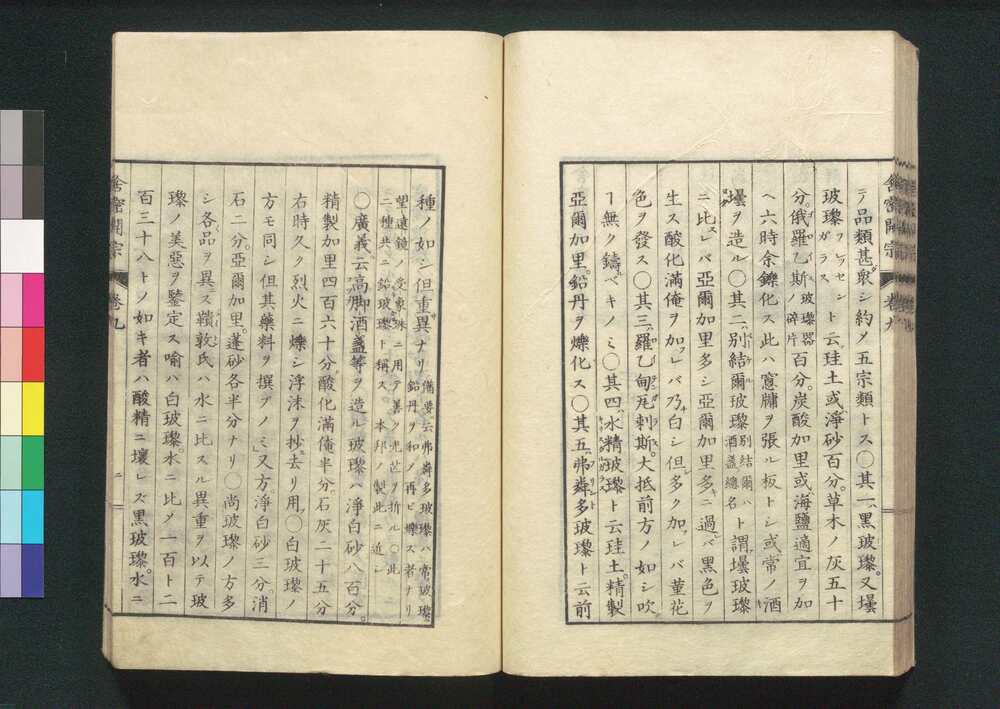 テ品類甚衆シ約メ五宗類トス〇其一黒玻瓈又壜
玻瓈ヲヒツセント云珪土或浄砂百分草木ノ灰五十
分俄羅乙斯玻瓈器ノ碎片百分炭酸加里或海鹽適宜ヲ加
ヘ六時余鑠化ス此ハ窻牖ヲ張ル板トシ或常ノ酒
壜ヲ造ル〇其二別結爾玻瓈別結爾ハ酒盞總名ト謂壜玻瓈
ニ比スレバ亞爾加里多シ亞爾加里多ニ過レバ黒色ヲ
生ス酸化満俺ヲ加レバ乃白シ但多ク加レバ菫花
色ヲ發ス〇其三羅乙甸瓦剌斯大抵前方ノ如シ吹
ヿ無ク鑄ベキノミ〇其四水精玻瓈ト云珪土精製
亞爾加里鉛丹ヲ爍化ス〇其五弗粦多玻瓈ト云前
種ノ如シ但重異ナリ備要云弗粦多玻瓈ハ常玻瓈鉛丹ヲ和メ再ヒ爍ス者ナリ
望遠鏡ノ受象珠ニ用テ善ク光芒ヲ折ル〇此二種共ニ鉛玻瓈ト稱ス本邦ノ製此ニ近シ
〇廣義云高脚酒盞等ヲ造ル玻瓈ハ淨白砂八百分
精製加里四百六十分酸化満俺半分石灰二十五分
右時久ク烈火ニ爍シ浮沫ヲ抄去リ用〇白玻瓈ノ
方モ同シ但其藥料ヲ撰ブノミ又方淨白砂三分消
石二分亞爾加里蓬砂各半分ナリ〇尚玻瓈ノ方多
シ各品ヲ異ス鞼敦氏ハ水ニ比スル異重ヲ以テ玻
瓈ノ美惡ヲ鑒定ス喩ハ白玻瓈水ニ比メ一百ト二
百三十八トノ如キ者ハ酸精ニ壞レズ黒玻瓈水ニ
舎密開宗
卷九
二